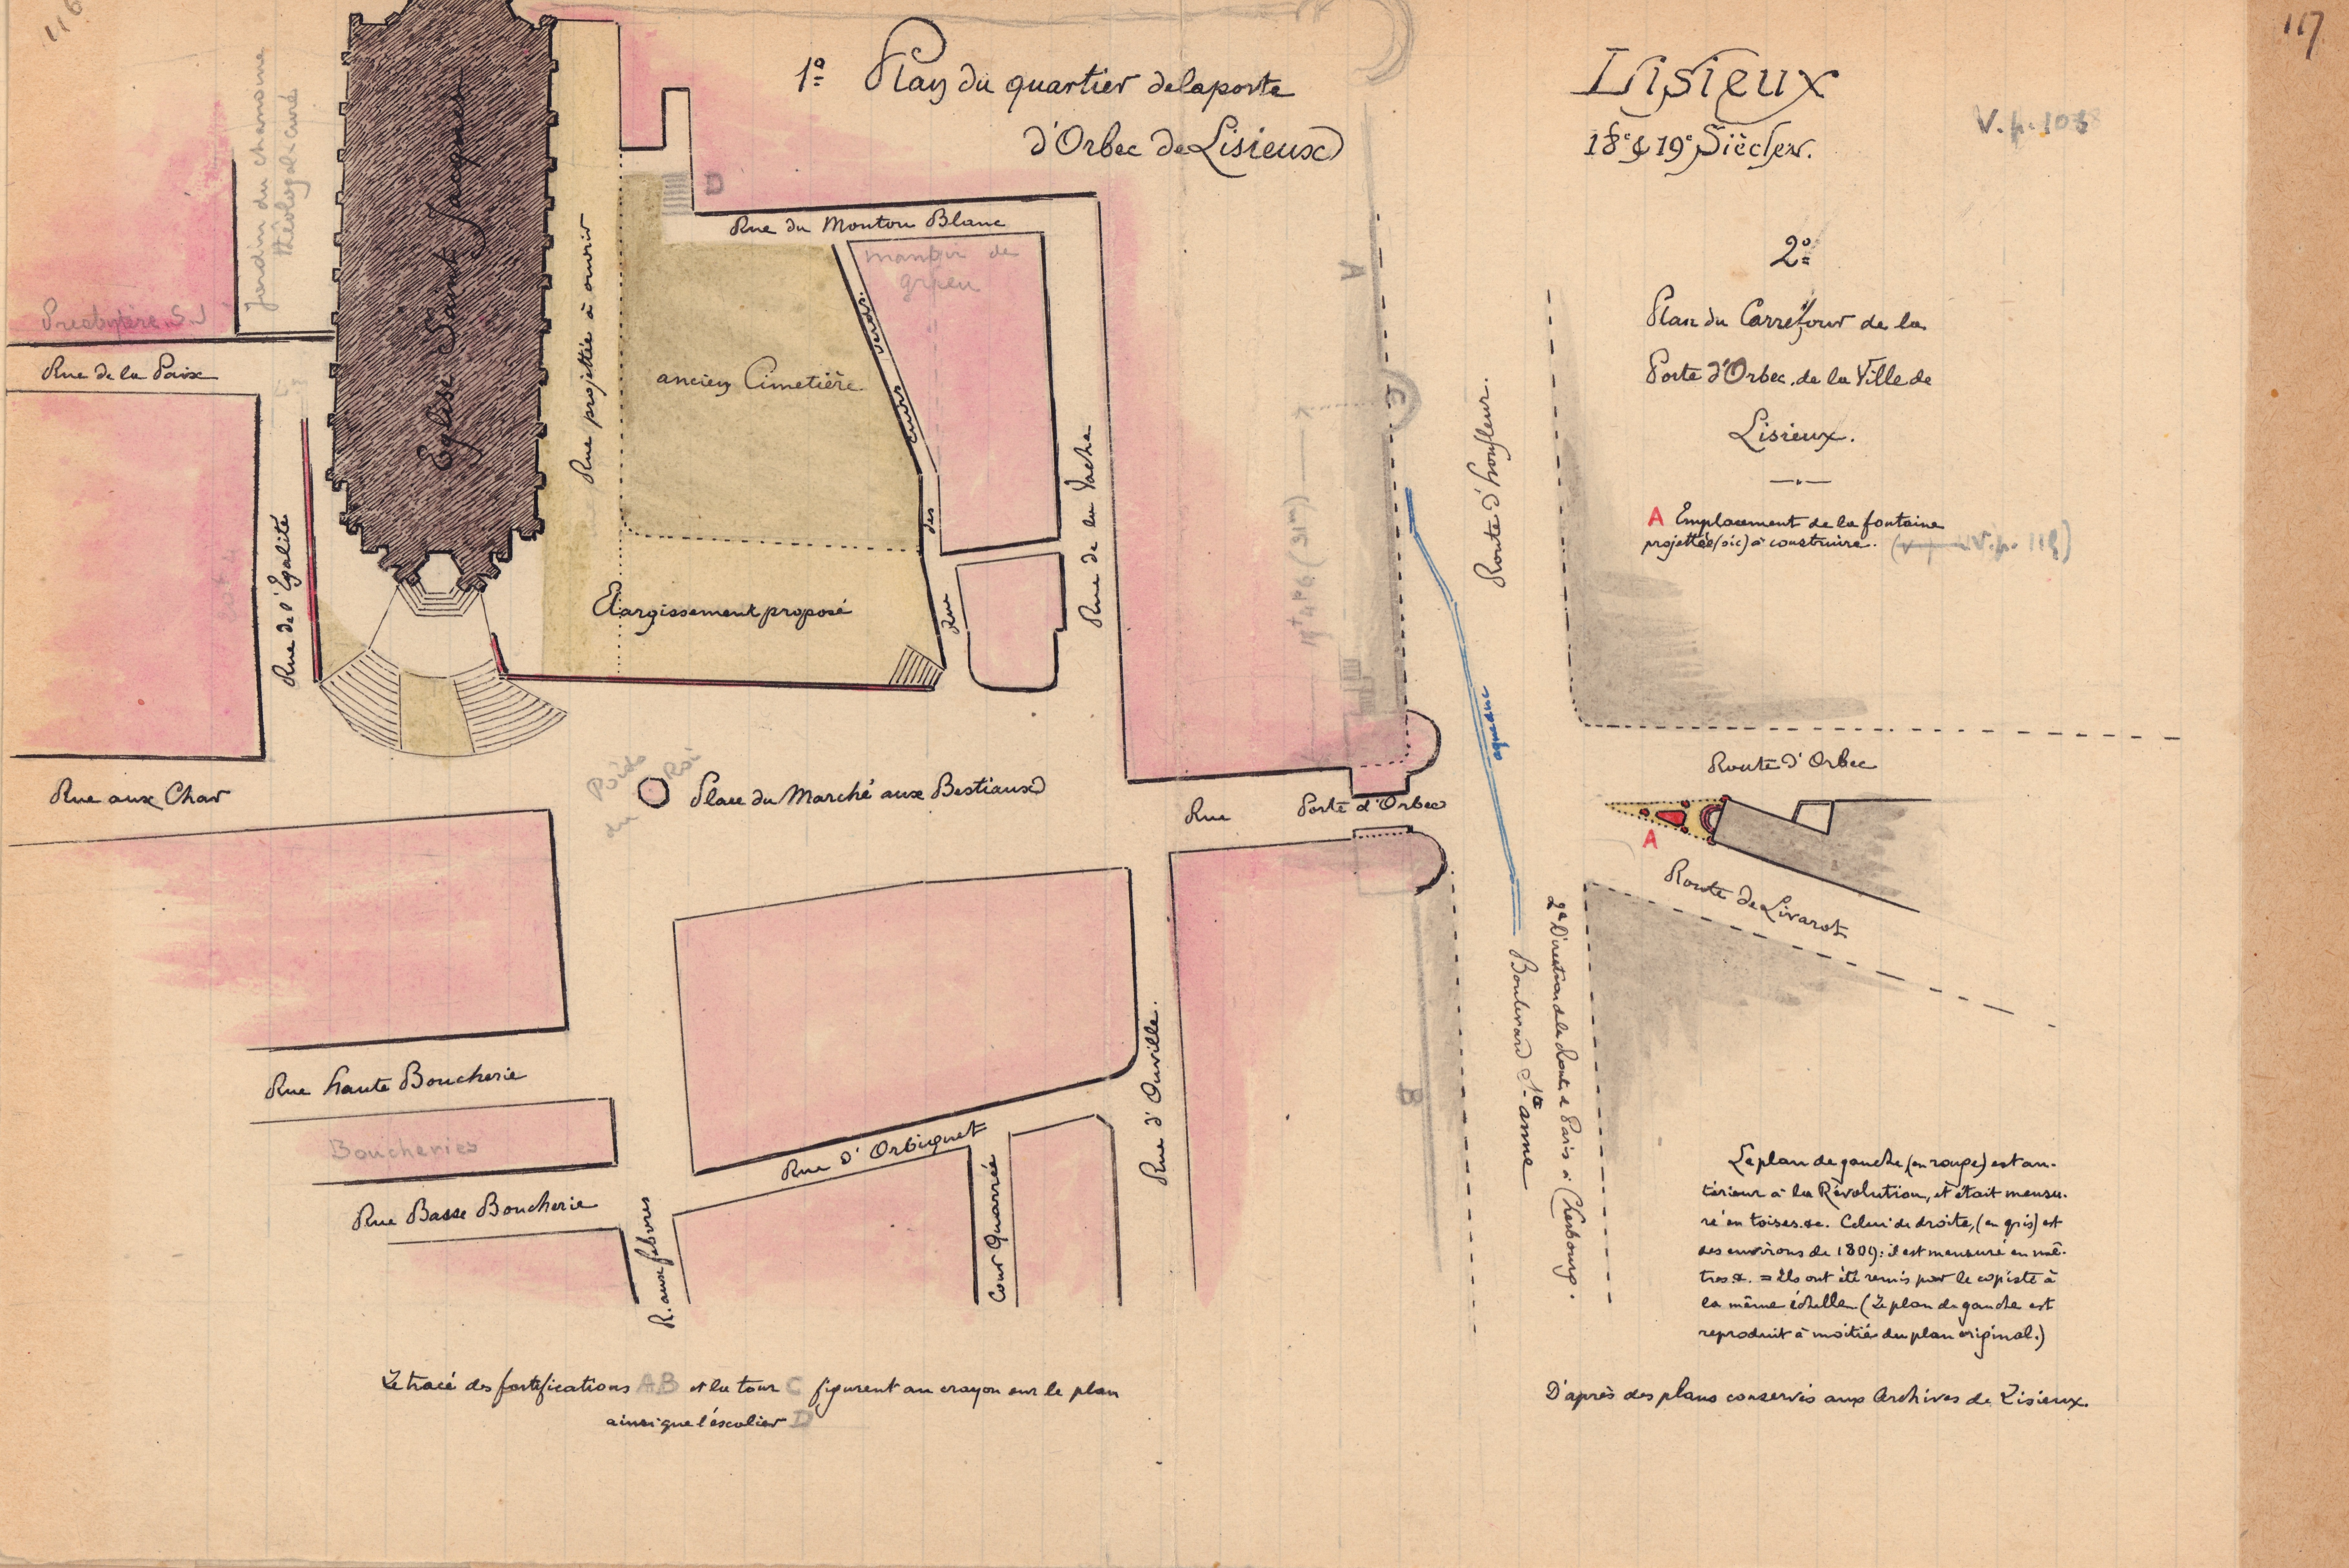 116
117
1º Plan du quartier de la porte
d'Orbec de Lisieux
Lisieux
18e & 19e Siècles.
V. p. 103
jardin du chanoine
théologal-curé
Presbytère S. J
Rue de la Paix
Eglise Saint Jacques
Rue projettée à ouvrir
D
Rue du Mouton Blanc
manoir de
ancien Cimetière
Rue des cuirs verds.
Rue de la Vache
Rue de l'Egalité
Elargissement proposé
A
C
Route d'honfleur.
aqueduc
2º
Plan du Carrefour de la
Porte d'Orbec, de la Ville de
Lisieux.
A Emplacement de la fontaine
projettée (sic) à construire.
Route d'Orbec
A
Route de Livarot
Rue aux Char
Poids du Roi
Place du Marché aux Bestiaux
Rue
Porte d'Orbec
Rue haute Boucherie
Boucheries
Rue Basse Boucherie
R. aux febvres
Rue d'Orbiquet
Cour Quarrée
Rue d'Ouville.
B
Boulevard Ste anne
2e Direction de la Route de Paris à Cherbourg.
Le plan de gauche (en rouge) est an-
térieur à la Révolution, et était mensu-
ré en toises. &c. Celui de droite, (en gris) est
des environs de 1809: il est mensuré en mè-
tres &. = Ils ont été remis par le copiste à
la même échelle (Le plan de gauche est
reproduit à moitié du plan original.)
Le tracé des fortifications AB et la tour C figurent au crayon sur le plan
ainsi que l'escalier D
D'après des plans conservés aux Archives de Lisieux.